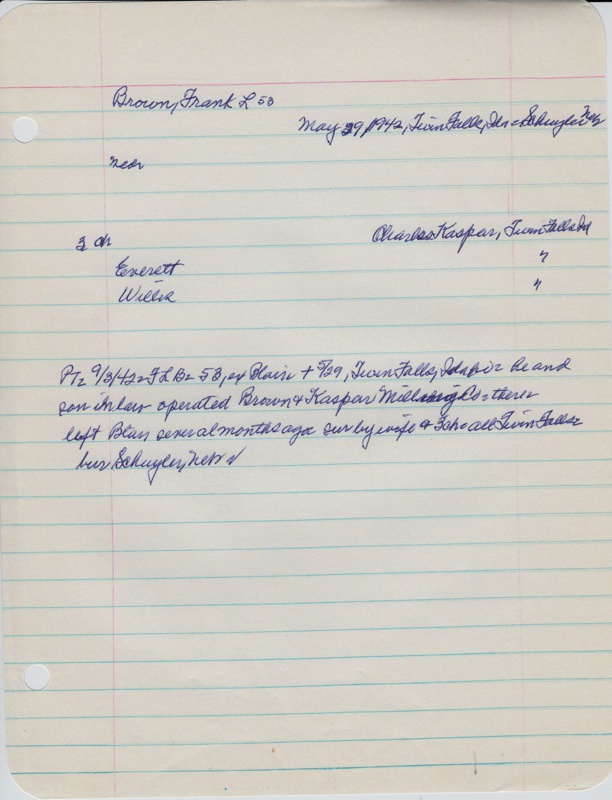 Brown, Frank L 53
May 29, 1942, Twin Falls, Ida = Schuyler Neb
near
3 ch
Charles Kaspar, Twin Falls Id
Everett "
Willis "
PT= 9/3/42 = F L B = 53, ex Blair + 5/29, Twin Falls, Ida he and
son in law operated Brown & Kaspar Milling Co there
left Blair several months ago sur by wife & 3 ch = all Twin Falls
bur Schuyler, Nebr